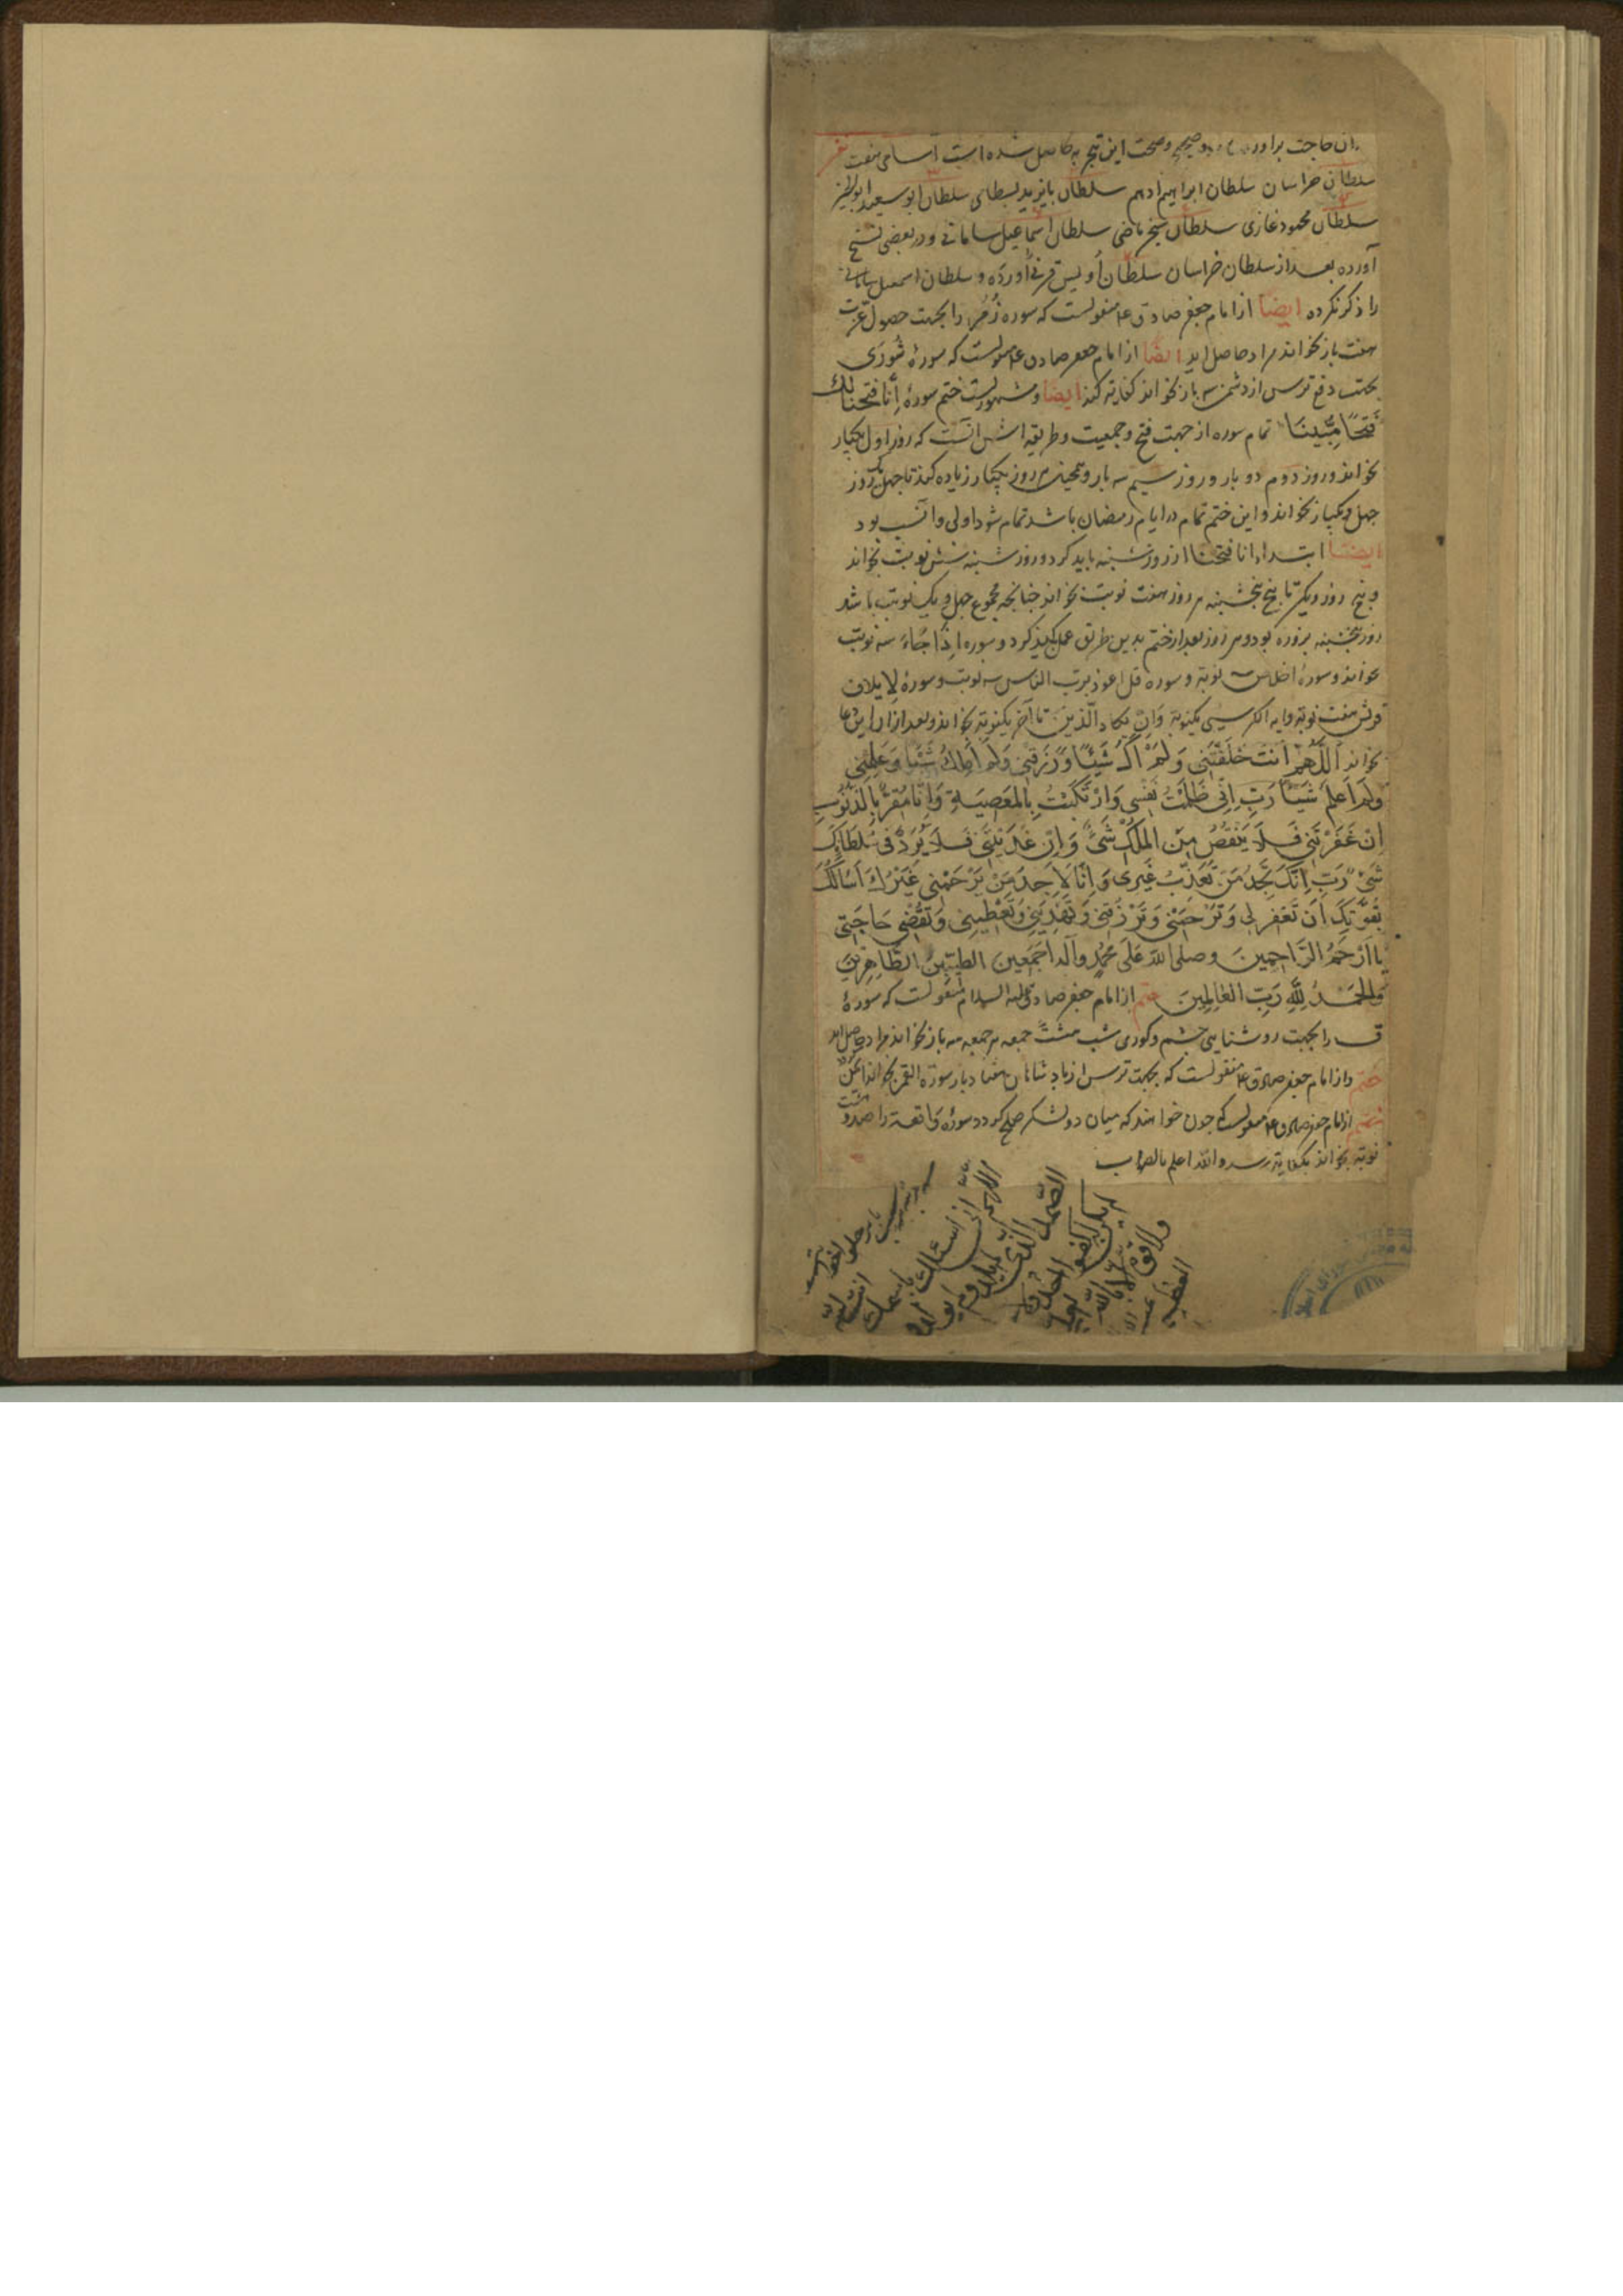 آن حاجت براورد و صحت این تجربه حاصل شده است اسامی هفت نفر
سلطان خراسان سلطان ابراهیم ادهم سلطان بایزید بسطامی سلطان ابو سعید ابوالخیر
سلطان محمود غازی سلطان سنجر ماضی سلطان اسماعیل سامانی و در بعضی نسخ
آورده بعد از سلطان خراسان سلطان أویس قرنی آورده و سلطان اسمعیل سامانی
را ذکر نکرده ایضا از امام جعفر صادق ع م منقولست که سوره زُمر را بجهت حصول عزت
هفت بار بخواند مراد حاصل اید ایضا از امام جعفر صادق ع م منقولست که سورهٔ شُورَی
بجهت دفع ترس از دشمن سه بار بخواند کفایة کند ایضا و مشهورست ختم سورهٔ إِنَّا فَتَحْنَا لَكَ
فَتْحًا مُبِينَا تمام سوره از جهت فتح و جمعیت و طریقه اش انست که روز اول یکبار
بخواند و روز دوم دو بار و روز سیم سه بار و همچنین هر روز یکبار زیاده کند تا چهل یک روز
چهل و یکبار بخواند و این ختم تمام در ایام رمضان باشد تمام شود اولی و انسب بود
ایضا ابتداء انا فتحنا از روز شنبه باید کرد و روز شنبه شش نوبت بخواند
و پنج روز دیگر تا پنجشنبه هر روز هفت نوبت بخواند چنانچه مجموع چهل و یک نوبت باشد
روز پنجشنبه بروزه بود و هر روز بعد از ختم بدین طریق عمل کند و سوره اِذَا جَاءَ سه نوبت
بخواند و سورهٔ اخلاص سه نوبة و سوره قل اعوذ برب الناس سه نوبت و سورهٔ لِایلاف
قریش هفت نوبة و ایه الکرسی یکنوبة وَاِنْ یَکاد الَّذِینَ تا آخر یکنوبة بخواند و بعد ازان این دعا
بخواند اَللَّهُمَّ اَنْتَ خَلَقْتَنِی وَلَمْ اَکُ شَیْئًا وَرَزَقْتَنِی وَلَمْ اَمْلِكْ شَیْئًا وَعَلَّمْتَنِی
وَلَمْ اَعْلَمْ شَیْئًا رَبِّ اِنِّی ظَلَمْتُ نَفْسِی وَارْتَکَبْتُ بِالْمَعْصِیَةِ وَاَنَا مُقِرٌّ بِالذُّنُوبِ
اِنْ غَفَرْتَنِی فَلَا یَنْقُصُ مِنَ الْمُلْكِ شَیْءٌ وَاِنْ عَذَّبْتَنِی فَلَا یُزَدُّ فِی سُلْطَانِكَ
شَیْءٌ رَبِّ اِنَّكَ تَجِدُ مَنْ تُعَذِّبُ غَیْرِی وَاَنَا لَا اَجِدُ مَنْ یَرْحَمْنِی غَیْرَكَ اَسْأَلُكَ
بِقُوَّتِكَ اَنْ تَغْفِرَ لِی وَتَرْحَمَنِی وَتَرْزُقَنِی وَتَهْدِیَنِی وَتُعْطِیَنِی وَتَقْضِیَ حَاجَتِی
یَا اَرْحَمَ الرَّاحِمِینَ وصلی الله عَلَی مُحَمَّدٍ وآله اَجْمَعِین الطَّیِّبِینَ الطَّاهِرِینَ
وَالْحَمْدُ لِلّٰهِ رَبِّ الْعَالَمِینَ ختم از امام جعفر صادق علیه السلام منقولست که سورهٔ
ق را بجهت روشنایی چشم و کوری شب هشت جمعه هر جمعه سه بار بخواند مراد حاصل اید
ختم و از امام جعفر صادق ع م منقولست که بجهت ترس از پادشاهان هفتاد بار سورة القمر بخواند
ختم از امام جعفر صادق ع م منقولست که چون خواهند که میان دو لشکر صلح گردد سورهٔ واقعه را صد و هشت
نوبة بخواند بکفایة رسد والله اعلم بالصواب
اللهم انی اسئلك
الصمد الذی لم یلد ولم یولد
ولم یکن له کفوا احد
ولا قوة الا بالله
العلی العظیم